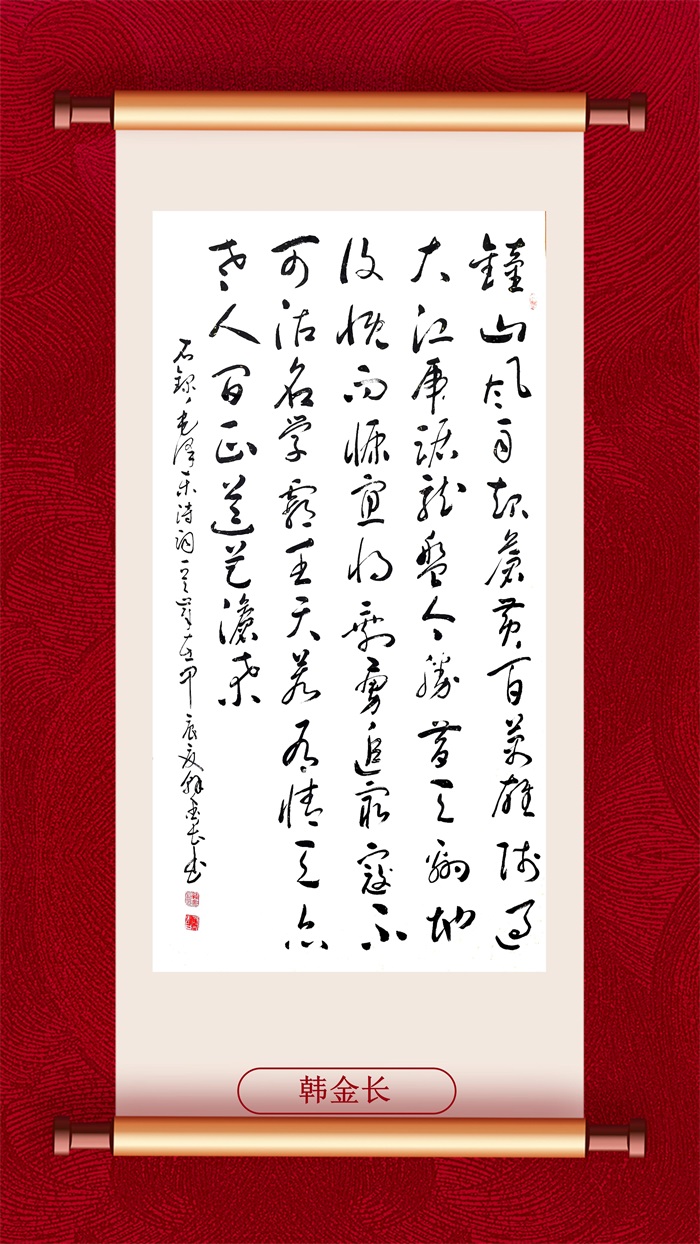 鐘山风雨起蒼黄百萬雄师过
大江虎踞龙盘今勝昔天翻地
覆慨而慷宜将剩勇追穷寇不
可沽名学霸王天若有情天亦
老人间正道是滄桑
右録毛泽东诗词一首岁在甲辰夏韩金长书
韩金长